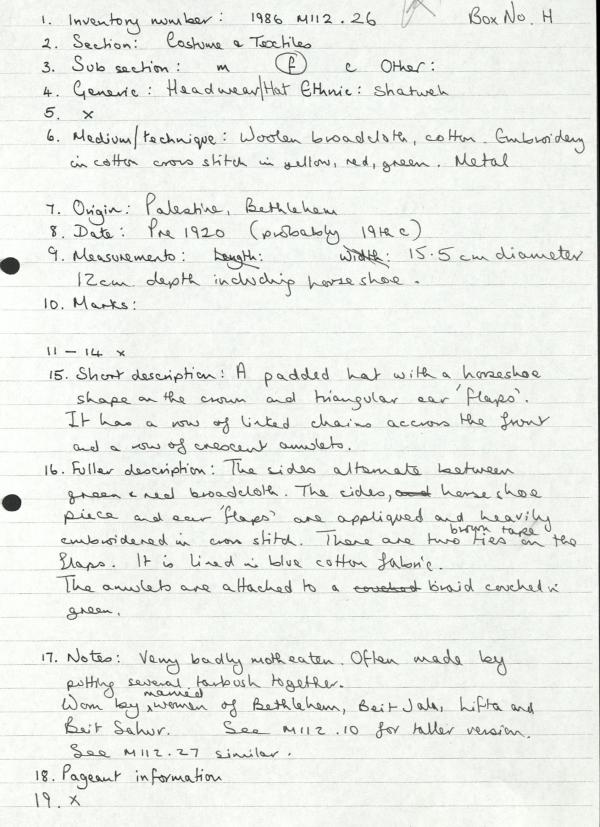 1. Inventory number: 1986 M112.26 Box No. H
2. Section: Costume & Textiles
3. Sub section: m f c Other:
4. Generic: Headwear/Hat Ethnic: Shatweh
5. x
6. Medium/technique: Woolen broadcloth, cotton. Embroidery
in cotton cross stitch in yellow, red, green. Metal
7. Origin: Palestine, Bethlehem
8. Date: Pre 1920 (probably 19th c)
9. Measurements: Length: Width: 15.5 cm diameter
12cm depth including horseshoe.
10. Marks:
11 – 14 x
15. Short description: A padded hat with a horseshoe
shape on the crown and triangular ear 'flaps'.
It has a row of linked chains accross the front
and a row of crescent amulets.
16. Fuller description: The sides alternate between
green & red broadcloth. The sides, and horse shoe
piece and ear 'flaps' are appliqued and heavily
embroidered in cross stitch. There are two brown tape ties on the
flaps. It is lined in blue cotton fabric.
The amulets are attached to a couched braid couched in
green.
17. Notes: Very badly motheaten. Often made by
putting several tarbush together.
Worn by married women of Bethlehem, Beit Jala, Lifta and
Beit Sahur. See M112.10 for taller version.
See M112.27 similar.
18. Pageant information
19. x